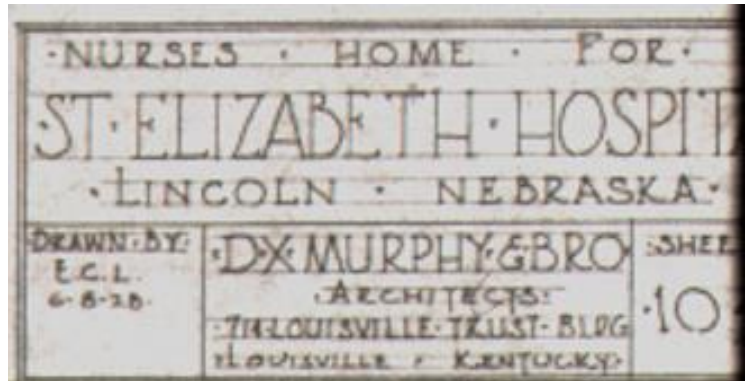 ·NURSES · HOME · FOR·
·ST·ELIZABETH·HOSPIT
·LINCOLN · NEBRASKA·
DRAWN·BY·
E.C.L.
6-8-28·
·D·X·MURPHY·&·BRO
·ARCHITECTS·
·LOUISVILLE·TRUST·BLDG
·LOUISVILLE · KENTUCKY·
·SHEE
·10